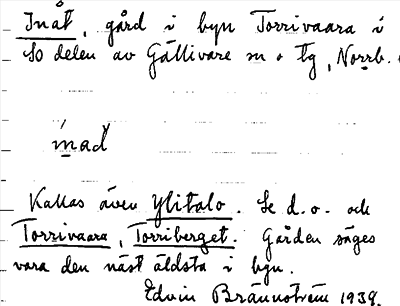 Inåt, gård i byn Torrivaara i
so delen av Gällivare sn o tg, Norrb.
Kallas även Ylitalo. Se d.o. och
Torrivaara, Torriberget. Gården säges
vara den näst äldsta i byn.
Edvin Brännström 1939.